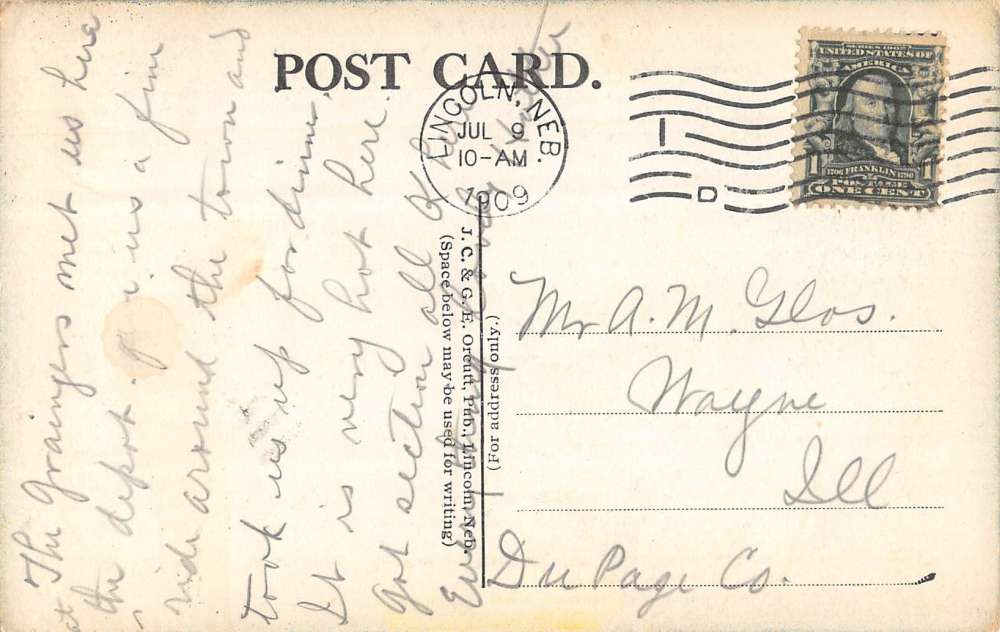 POST CARD.
LINCOLN, NEB.
JUL 9
10-AM
1909
I
D
SERIES 1902
UNITED STATES OF
AMERICA
1 1
1706 FRANKLIN 1790
ONE CENT
J. C. & G. E. Orcutt, Pub., Lincoln, Neb.
(Space below may be used for writing)
(For address only.)
Mr A. M. Glos.
Wayne
Ill
Du Page Co.
The Graingers met us here
at the depot. us a fine
ride around the town and
took us up for dinner.
It is very hot here.
Got section all O.K.